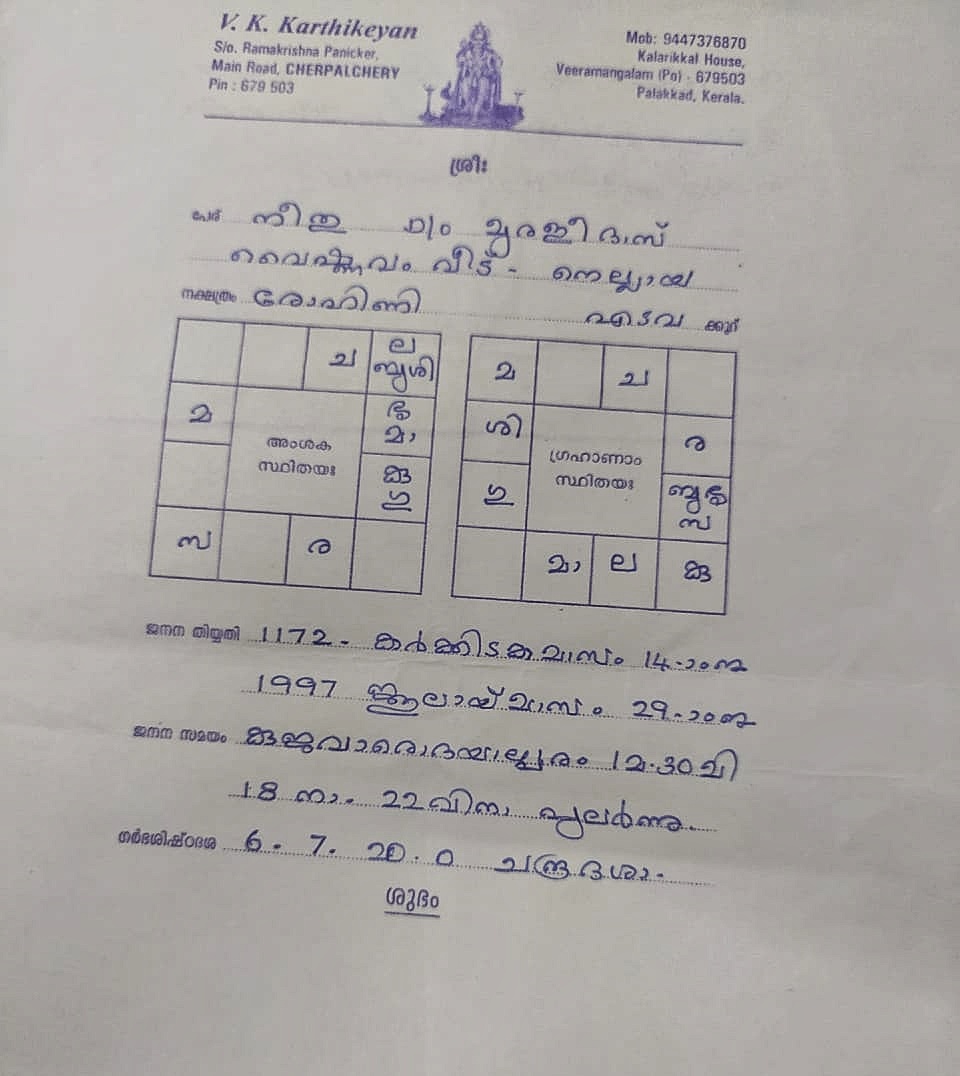 V. K. Karthikeyan
S/o. Ramakrishna Panicker,
Main Road, CHERPALCHERY
Pin : 679 503
Mob: 9447376870
Kalarikkal House,
Veeramangalam (Po) - 679503
Palakkad, Kerala.
ശ്രീഃ
പേര് നീതു D/o മുരളീദാസ്
വൈഷ്ണവം വീട് - നെല്ലായ
നക്ഷത്രം രോഹിണി എടവ ക്കൂറ്
ച ല
ബുശി
മ ഭൃ
മാ
അംശക
സ്ഥിതയഃ
കു
ഗു
സ ര
മ ച
ശി ര
ഗ്രഹാണാം
സ്ഥിതയഃ
ഗു ബുഭൃ
സ
മാ ല കു
ജനന തിയ്യതി 1172 - കർക്കിടകമാസം 14-ാംനു
1997 ജൂലായ് മാസം 29-ാംനു
ജനന സമയം കുജവാരോദയാല്പരം 12.30 വി
18 നാ. 22 വിനാ പുലർന്നു.
ഗർഭശിഷ്ടദശ 6 . 7. 20 . 0 ചന്ദ്രദശാ.
ശുഭം